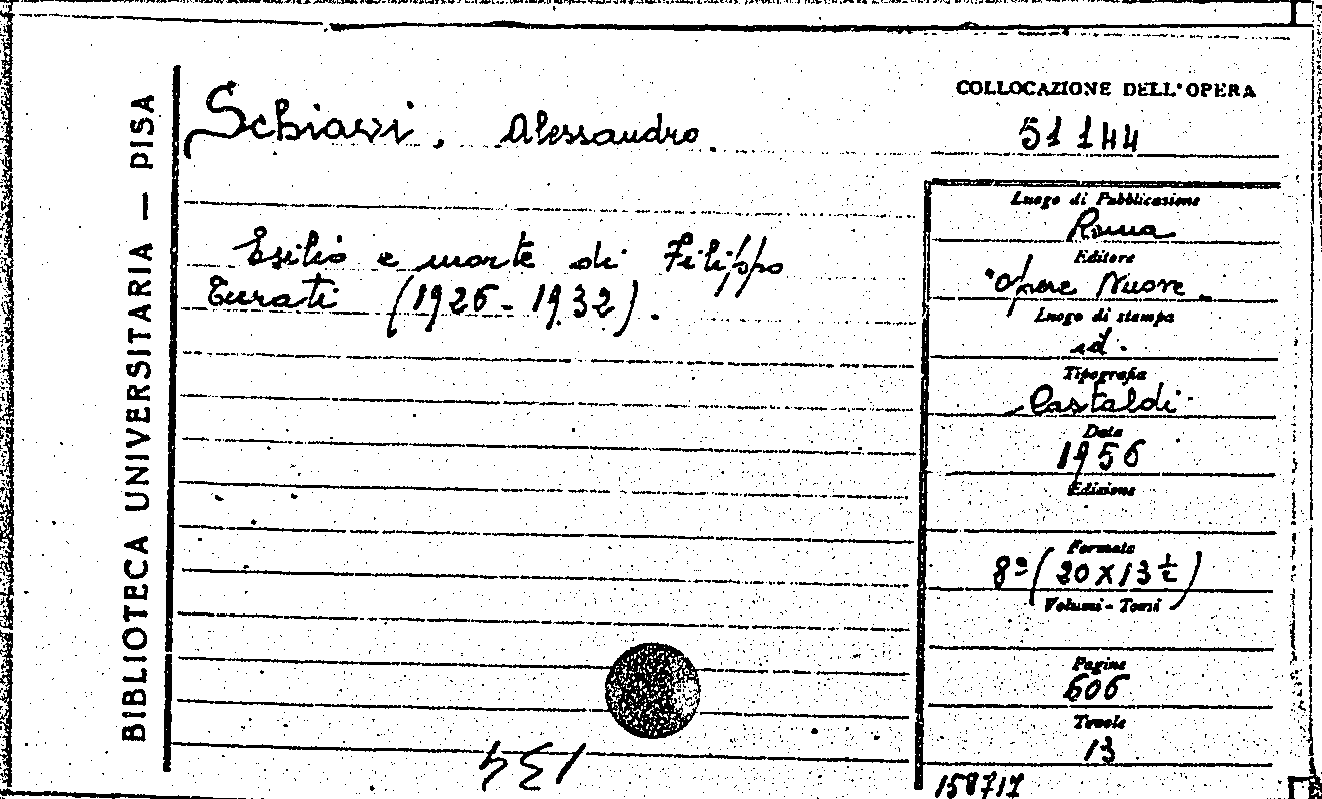 BIBLIOTECA UNIVERSITARIA — PISA
Schiavi, Alessandro.
Esilio e morte di Filippo
Turati (1926-1932).
COLLOCAZIONE DELL'OPERA
51144
Luogo di Pubblicazione
Roma
Editore
"Opere Nuove
Luogo di stampa
id.
Tipografia
Castaldi
Data
1956
Edizione
Formato
8º (20x13½)
Volumi - Tomi
Pagine
606
Tavole
13
158717
134